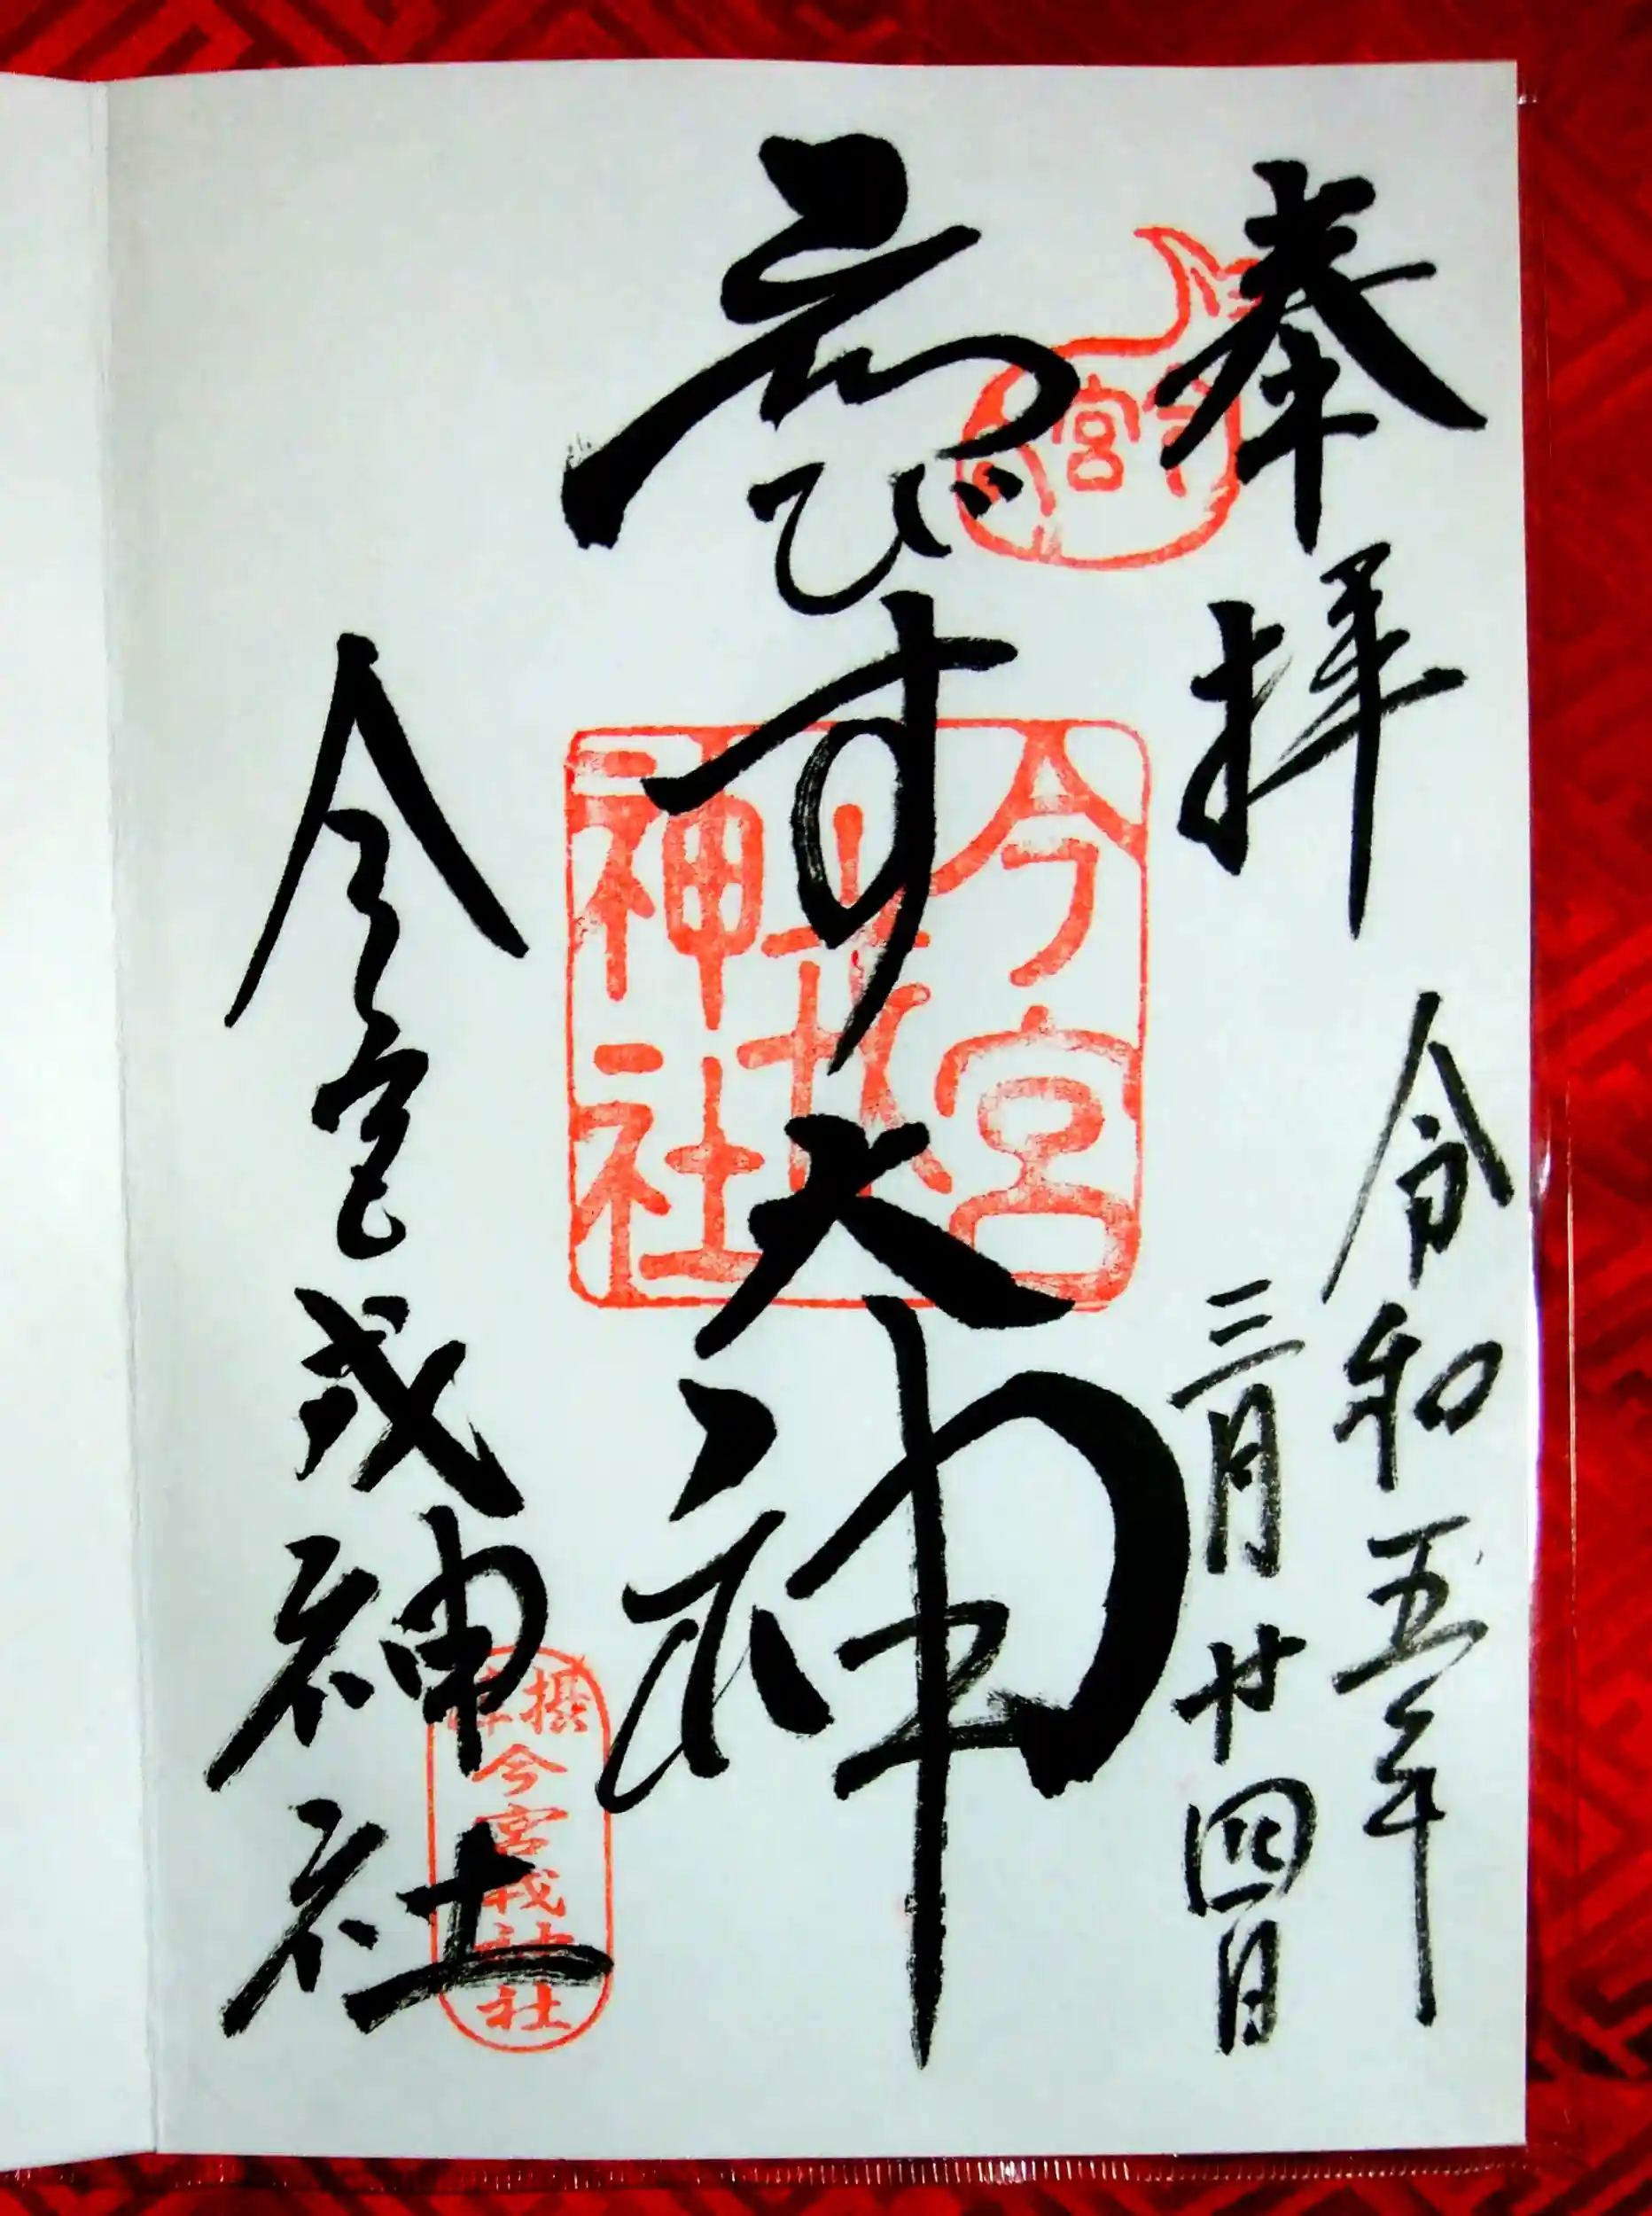 奉拝
令和五年
三月廿四日
ゑびす大神
今宮戎神社
今宮
今宮戎神社
摂津
今宮戎神社